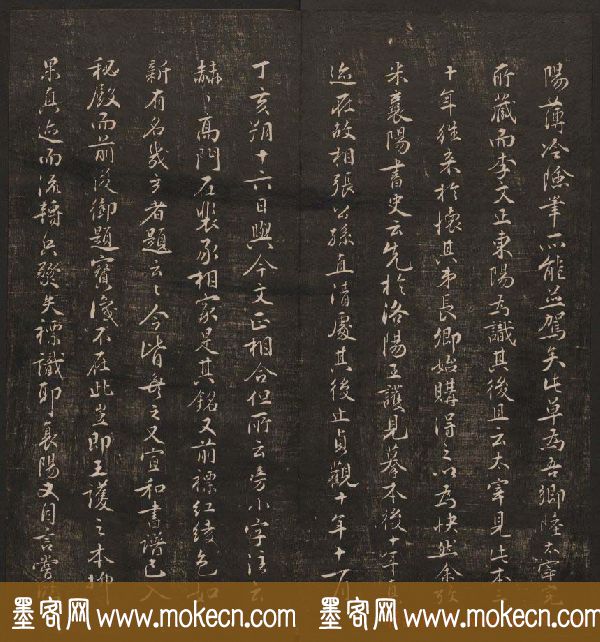 陽薄冷隂輩所能並駕矣此草為吾鄉陸太宰完
所藏而李文正東陽為識其後且云太宰見此本
十年繼來於懷其弟長卿始購得之以為快然余
米襄陽書史云先於洛陽王護見摹本後十年真
迹在故相張公孫直清處其後止貞觀十年十一月
丁亥朔十六日與今文正相合但所云旁小字注云
赫赫高門在裴丞相家是其銘又前標紅綾色如
新有名幾方者題云云今皆無之又宣和書譜已入
秘殿而前後御題寶識不在此豈即王護之本抑
果真迹而流轉兵燹失標識耶襄陽又自言嘗
墨客网 www.mokecn.com 墨客网 www.mokecn.com